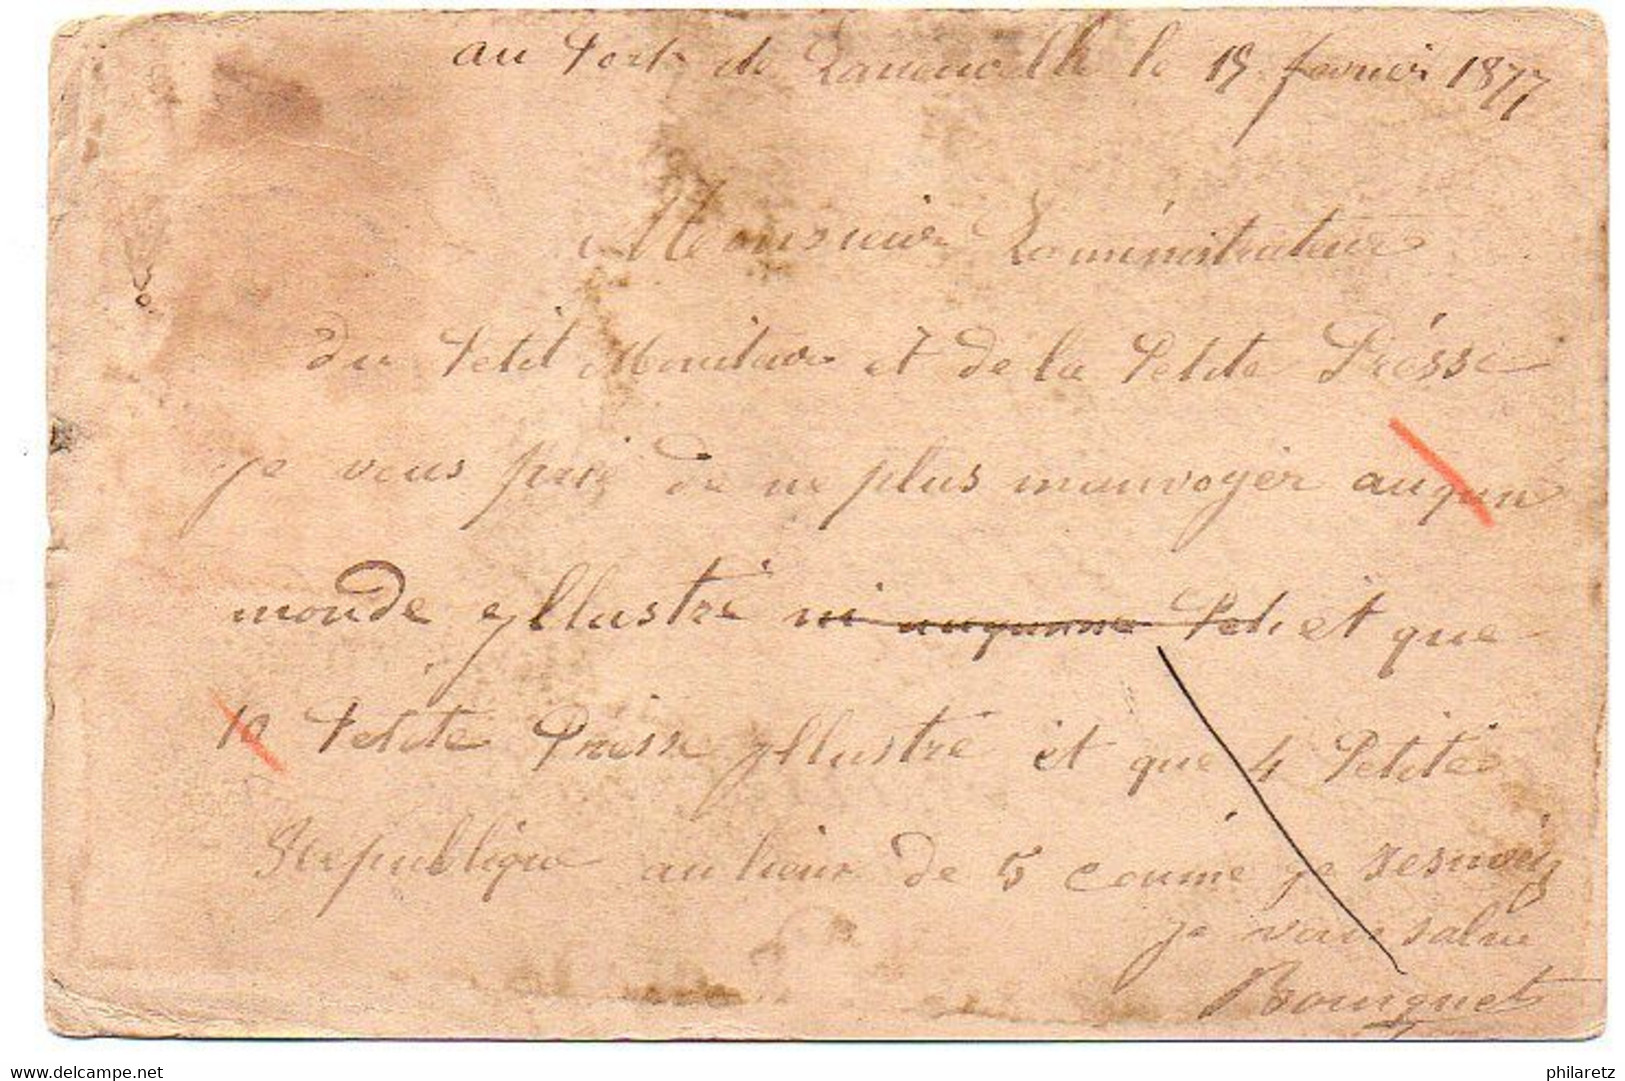 au Fort de Laneuvelle le 19 fevrier 1877
Monsieur Laministrateur
du Petit Moniteur et de la Petite Présse
je vous prie de ne plus manvoyér auqun
monde yllustré ni auqunne Peti et que
10 Petite Presse yllustré et que 4 Petite
Republique au lieur de 5 coume je resuvey
je vous salue
Bouquet
www.delcampe.net
philaretz